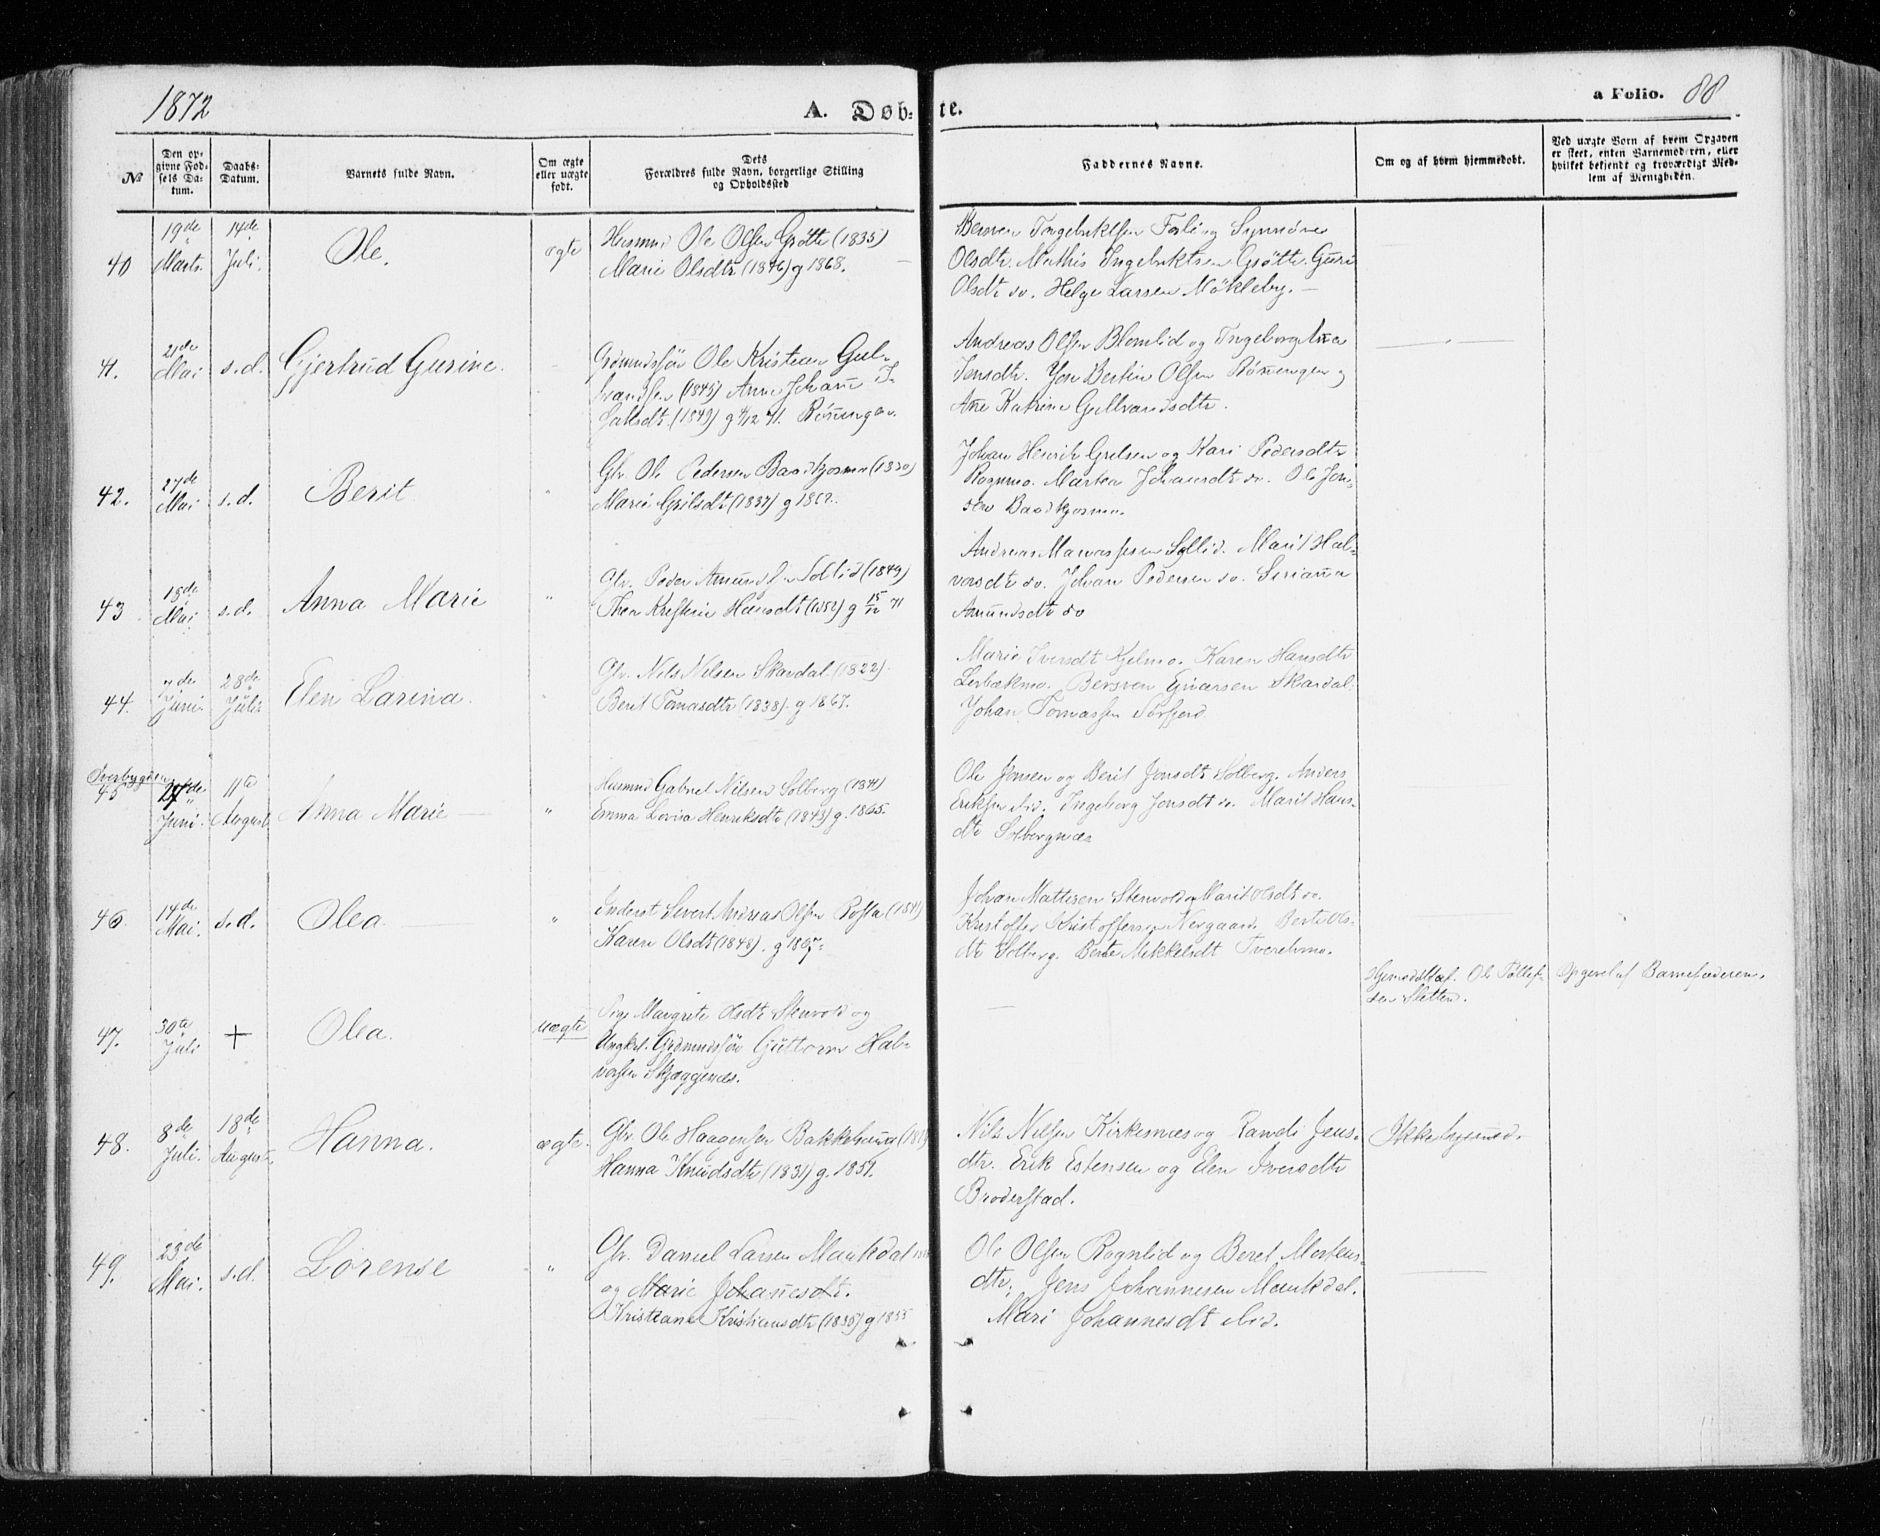 1872
A. Døb-te.
a Folio. 88
No
Den opgivne Fødsels Datum.
Daabs-Datum.
Barnets fulde Navn.
Om ægte eller uægte født.
Dets Forældres fulde Navn, borgerlige Stilling og Opholdssted
Faddernes Navne.
Om og af hvem hjemmedøbt.
Ved uægte Børn af hvem Opgaven er skeet, enten Barnemoderen, eller hvilket bekjendt og troværdigt Medlem af Menigheden.
40 19de Marts. 14de Juli. Ole. ægte
Husmd Ole Olsen Grøtte (1835)
Marie Olsdtr (1846) g 1868.
Bersven Ingebriktsen Fosli og Synnøve
Olsdtr. Mathis Ingebriktsen Grøtte. Guri
Olsdtr do. Helge Larsen Møkleby. —
41. 21de Mai s.d. Gjertrud Gurine.
Grdmandssøn Ole Kristian Gul-
brandsen (1845) Anne Johane I-
saksdtr. (1849) g 4/12 71. Rønningen.
Andreas Olsen Blomlid og Ingeborg Ane
Jensdtr. Jon Bertin Olsen Rønningen og
Ane Katrine Gulbrandsdtr.
42. 27de Mai s.d. Berit "
Gbr. Ole Pedersen Baadkjosmo (1830)
Marie Grelsdtr (1837) g 1862.
Johan Henrik Grelsen og Kari Pedersdtr
Rognmo. Martea Johansdtr do. Ole Jen-
sen Baadkjosmo.
43 18de Mai s.d. Anna Marie "
Gbr. Peder Amundsen Sollid (1849)
Thea Kristine Hansdtr (1852) g 15/12 71
Andreas Sollid. Marit Hal-
vorsdtr do. Johan Pedersen do. Serianna
Amundsdtr do
44. Juni. 28de Juli. Elen Larina. "
Gbr. Nils Nilsen Skardal (1822).
Berit Tomasdtr (1838). g 1867.
Marie Iversdtr Kjelmo. Karen Hansdtr
Lerbækmo. Bersven Skardal.
Johan Tomassen Sørfjord.
Øverbygden
45 Juni. 11te August Anna Marie — "
Husmd Gabriel Nilsen Solberg (1841)
Emma Lovisa Henriksdtr (1843) g. 1865.
Ole Jonsen og Berit Jonsdtr Solberg. Anders
Eriksen ibid. Ingeborg Jonsdtr do. Marit Hans-
dtr Solbergnæs
46. 14de Mai. s.d. Olea. "
Inderst Sivert Andreas Olsen Rosta (1841)
Karen Olsdtr (1848). g 1867.
Johan Mattisen Stenvold og Marit Olsdtr do.
Kristoffer Kristoffersen Nergaard. Berte Ols-
dtr Solberg. Berte Mikkelsdtr Tverelvmo.
47. 30te Juli + Olea. uægte
Pige Margrete Olsdtr Stenvold og
Ungkrl. Grdmandssøn Guttorm Hal-
vorsen Skjæggenæs.
—
Hjemmedøbt af Ole Tollef-
sen Sletten.
Opgivet af Barnefaderen.
48. 8de Juli. 18de August. Hanna. ægte.
Gbr. Ole Haagensen Bakkehaug
Hanna Knudsdtr (1831) g. 1857.
Nils Nilsen Kirkesnæs og Randi Jens-
dtr. Erik Estensen og Elen Iversdtr
Broderstad.
Ikke hjemmed.
49. 23de Mai. s.d. Lorense "
Gbr. Daniel Larsen Maukdal
og Marie Johannesdtr.
Kristiane Kristiansdtr (1830) g 1855
Ole Olsen Rognlid og Beret Mortens-
dtr. Jens Johannesen Maukdal.
Mari Johannesdtr ibid.